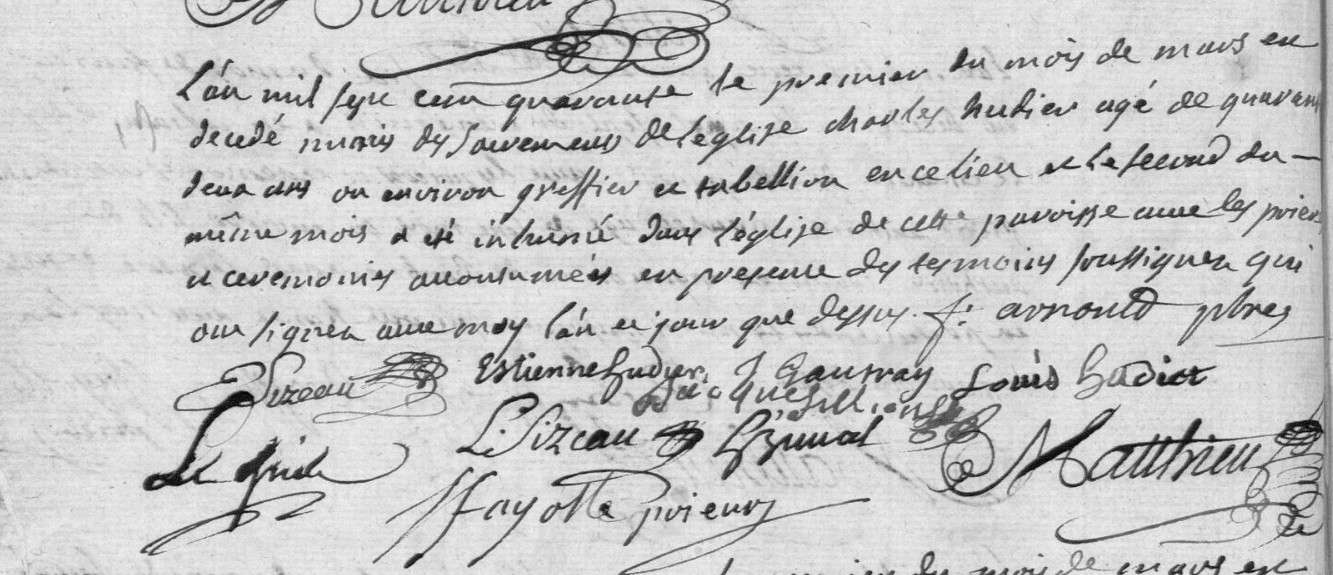 L'an mil sept cent quarante le premier du mois de mars est
decedé munis des sacremens de l'eglise charles hudier agé de quarante
deux ans ou environ greffier et tabellion en ce lieu et le second du
même mois a été inhumé dans l'église de cette paroisse avec les prieres
et ceremonies accoutumées en presence des temoins soussignez qui
ont signez avec moy l'an et jour que dessus. f: arnould pbre
Sizeau Estienne hudier J Gautray Louis hudier
Jacque
L. Sizeau Matthieu
ffayolle prieur
du mois de mars est